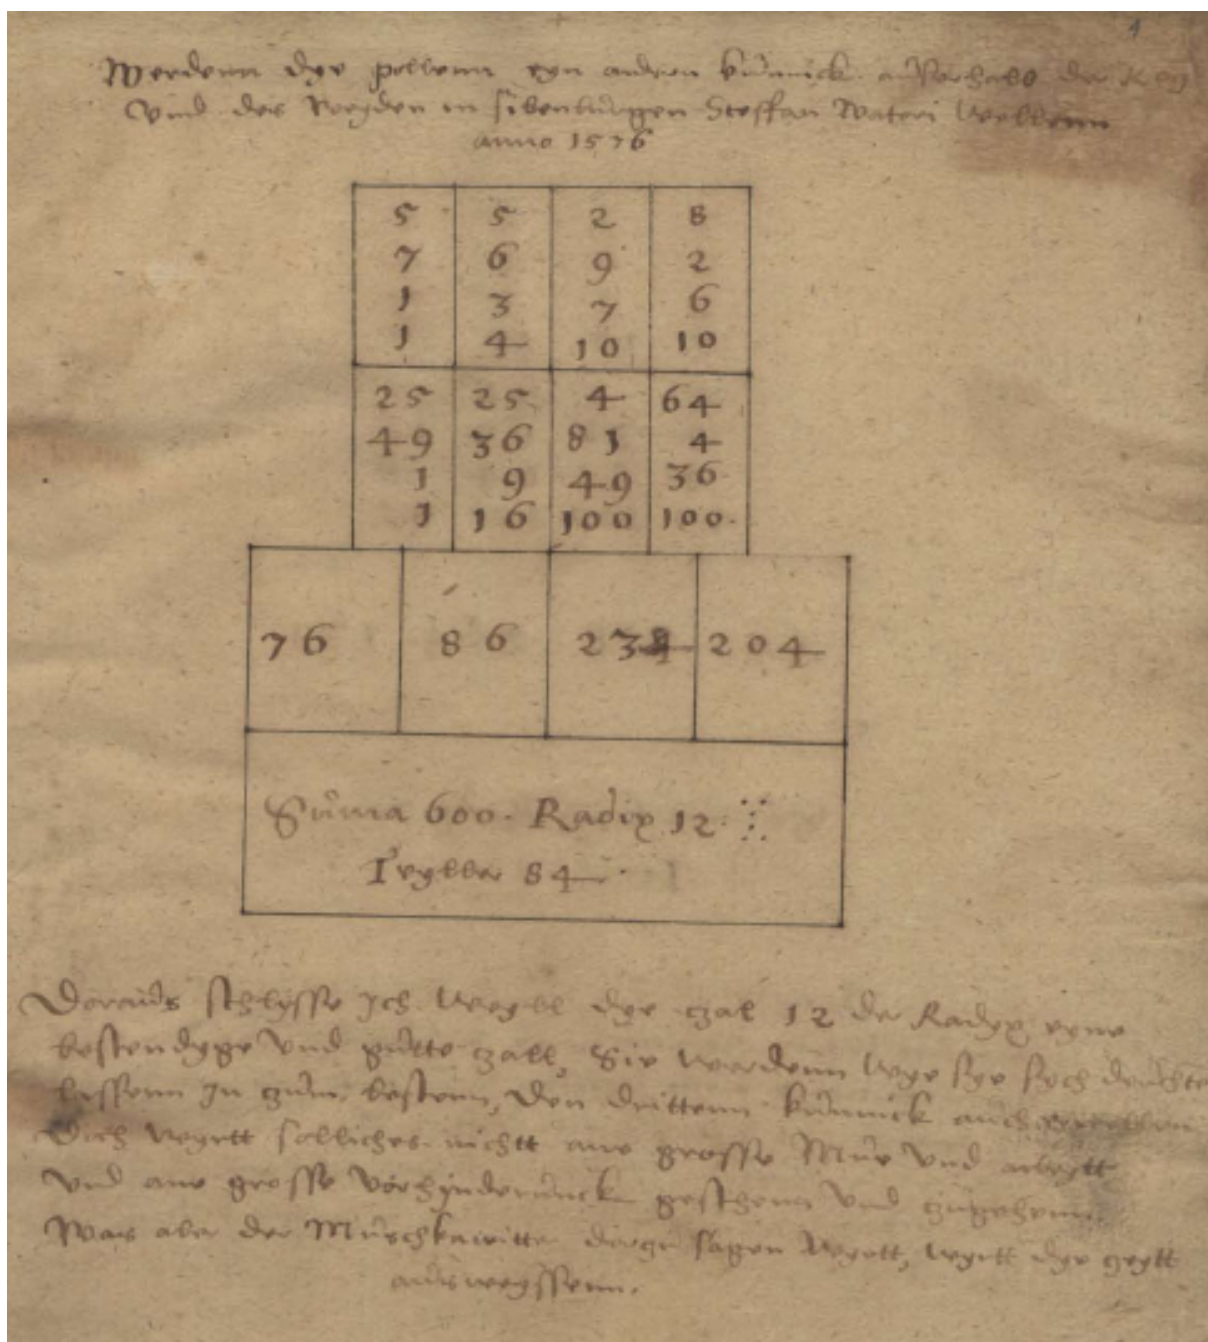 4
Werdenn dye pollenn eyn andren kunnick außerhalb der
Vnd des Reyden in sibenburgen Steffan Watori Wellenn
anno 1576
5 5 2 8
7 6 9 2
1 3 7 6
1 4 10 10
25 25 4 64
49 36 81 4
1 9 49 36
1 16 100 100
76 86 234 204
Suma 600. Radix 12.
Teyller 84
Doraus schlysse Ich Weyll dye czal 12 der Radyx eyne
bestendyge Vnd gutte czall, Sie werdenn Wye sye sych
lassenn In zum bestenn, Den drittenn kunnick auch
Doch Wyrtt solliches nichtt ane grosse Mue Vnd arbeytt
Vnd ane grosse Vorhynderunck geschenn Vnd zugehenn.
Was aber der Muschkawitter dorzu sagen Wyrtt, Wyrtt dye zeytt
ausweyssenn.